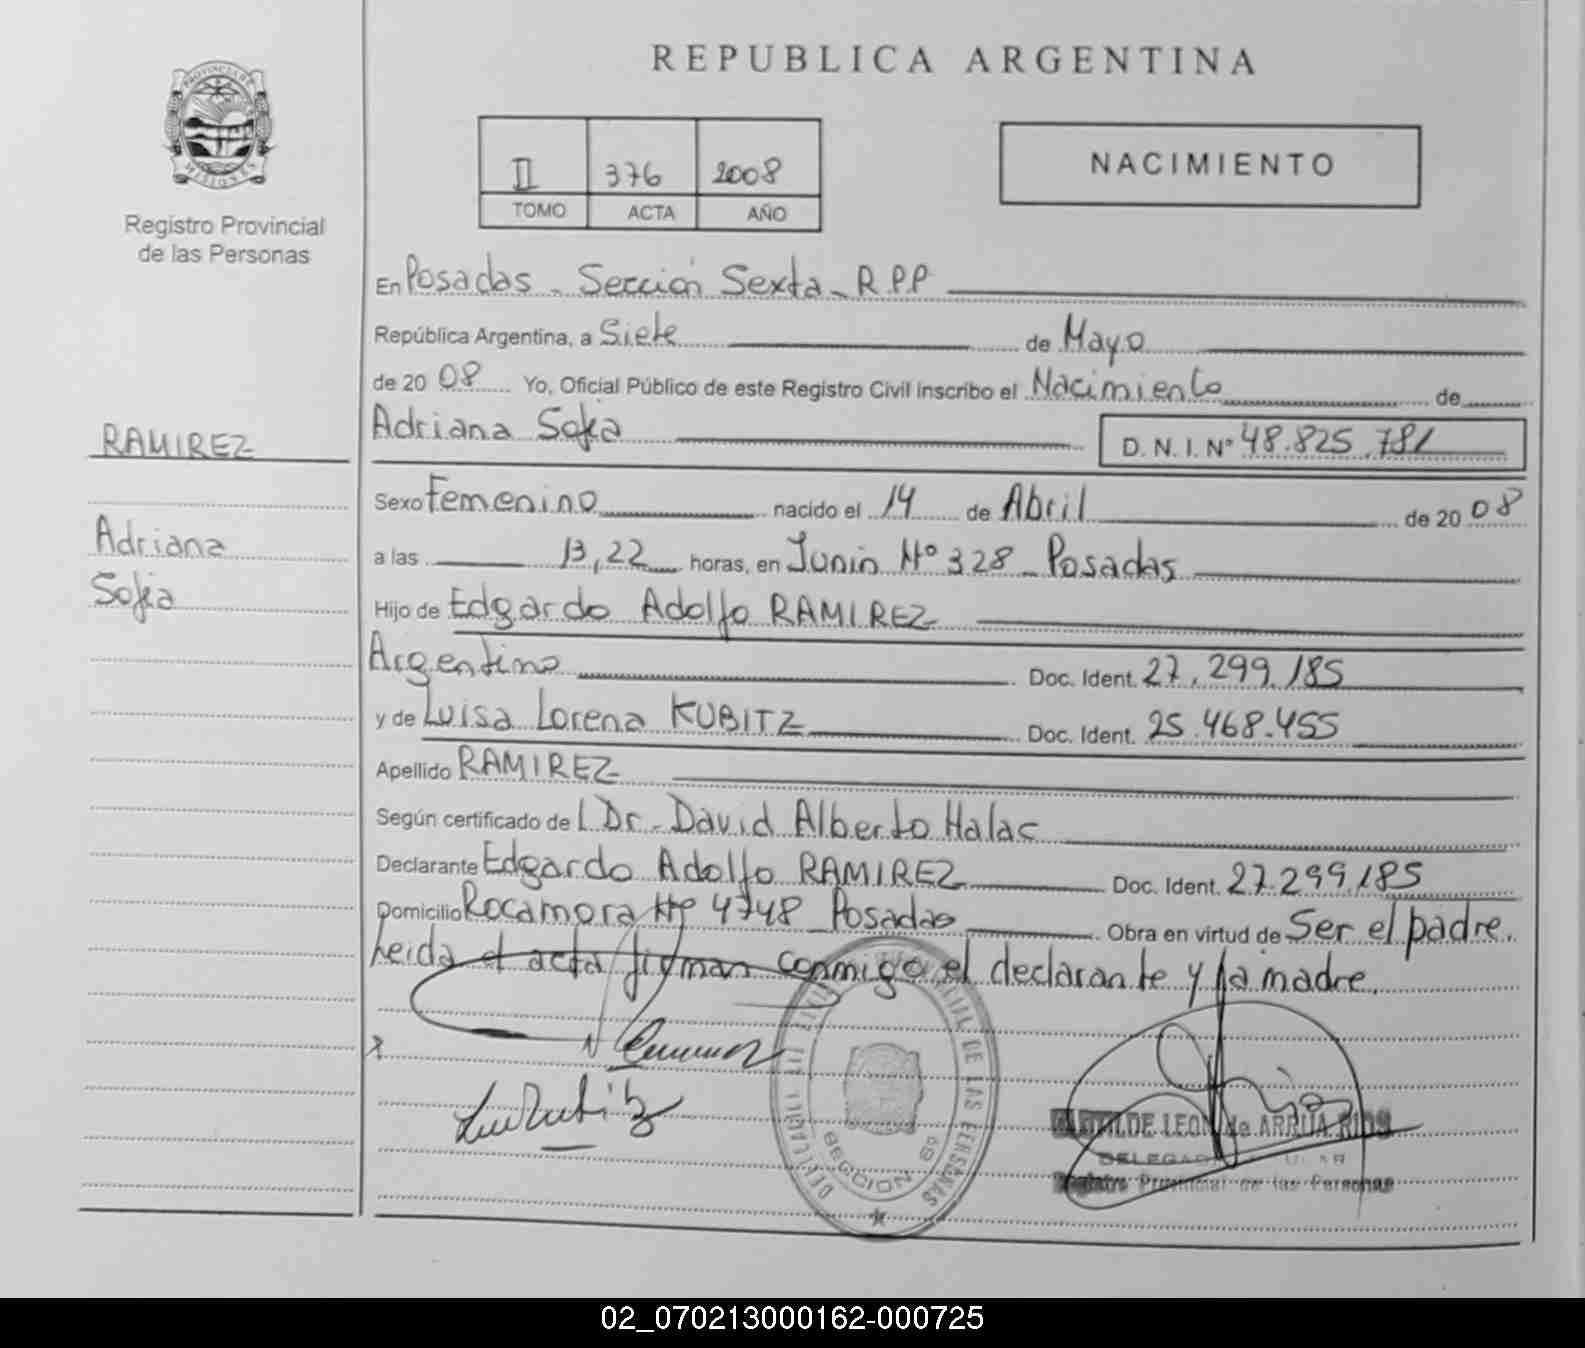 REPUBLICA ARGENTINA
PROVINCIA DE
MISIONES
Registro Provincial
de las Personas
II 376 2008
TOMO ACTA AÑO
NACIMIENTO
En Posadas - Sección Sexta - R.P.P
República Argentina, a Siete de Mayo
de 2008 Yo, Oficial Público de este Registro Civil inscribo el Nacimiento de
Adriana Sofia D. N. I. Nº 48.825.781
RAMIREZ
Adriana
Sofia
Sexo Femenino nacido el 14 de Abril de 2008
a las 13,22 horas, en Junin Nº 328 - Posadas
Hijo de Edgardo Adolfo RAMIREZ
Argentino Doc. Ident. 27.299.185
y de Luisa Lorena KUBITZ Doc. Ident. 25.468.455
Apellido RAMIREZ
Según certificado de l Dr. David Alberto Halac
Declarante Edgardo Adolfo RAMIREZ Doc. Ident. 27.299.185
Domicilio Rocamora Nº 4748 Posadas Obra en virtud de Ser el padre.
Leida el acta firman conmigo el declarante y la madre.
DE LAS PERSONAS
SECCION 6º
LEON de ARRUA RIOS
Registro Provincial de las Personas
02_070213000162-000725